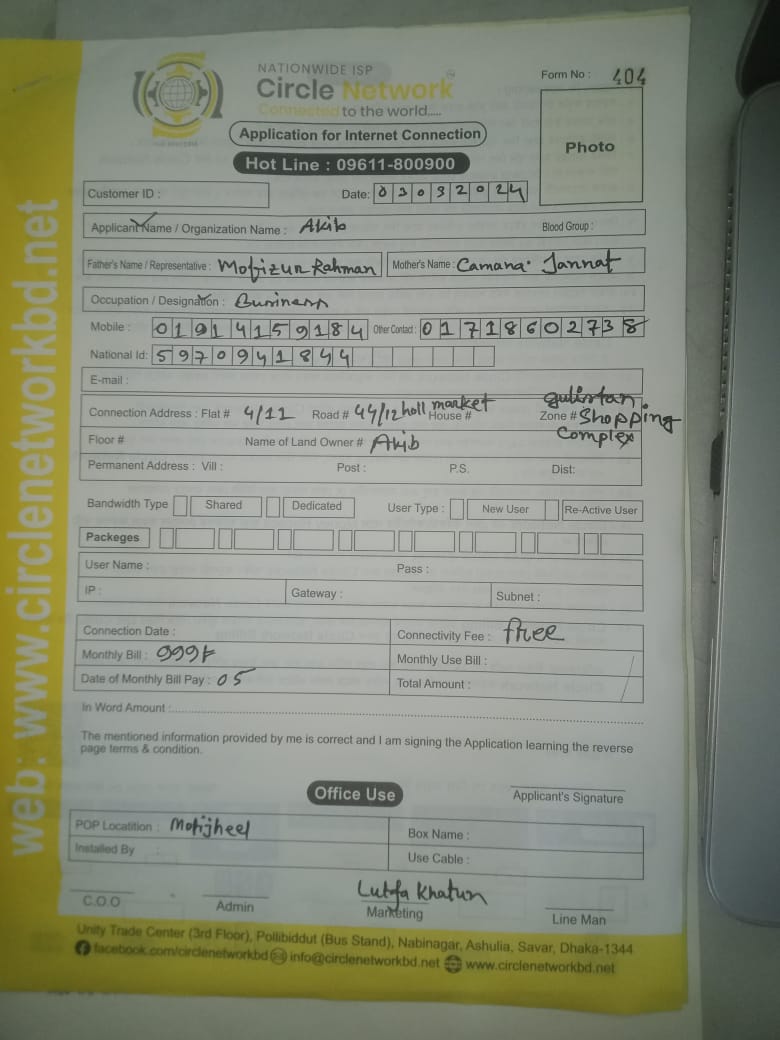 NATIONWIDE ISP
Circle Network
Connected to the world.....
Form No : 404
Application for Internet Connection
Photo
Hot Line : 09611-800900
Customer ID : Date: 03032024
Applicant Name / Organization Name : Akib Blood Group :
Father's Name / Representative : Mofizur Rahman Mother's Name : Camana. Jannat
Occupation / Designation : Business
Mobile : 01914159184 Other Contact : 01718602738
National Id: 5970941844
E-mail :
Connection Address : Flat # 4/11 Road # 44/12 holl market House # Zone # gulistan Shopping Complex
Floor # Name of Land Owner # Akib
Permanent Address : Vill : Post : P.S. Dist:
Bandwidth Type Shared Dedicated User Type : New User Re-Active User
Packeges
User Name : Pass :
IP : Gateway : Subnet :
Connection Date : Connectivity Fee : free
Monthly Bill : Monthly Use Bill :
Date of Monthly Bill Pay : 05 Total Amount :
In Word Amount :
The mentioned information provided by me is correct and I am signing the Application learning the reverse
page terms & condition.
Office Use
Applicant's Signature
POP Locatition : Motijheel Box Name :
Installed By : Use Cable :
Lutfa Khatun
C.O.O Admin Marketing Line Man
Unity Trade Center (3rd Floor), Pollibiddut (Bus Stand), Nabinagar, Ashulia, Savar, Dhaka-1344
facebook.com/circlenetworkbd info@circlenetworkbd.net www.circlenetworkbd.net
web: www.circlenetworkbd.net